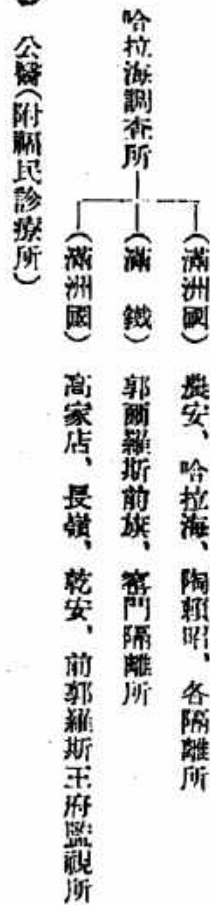 哈拉海調査所
(滿洲國) 農安、哈拉海、陶賴昭、各隔離所
(滿鐵) 郭爾羅斯前旗、窰門隔離所
(滿洲國) 高家店、長嶺、乾安、前郭羅斯王府監視所
公醫(附屬民診療所)